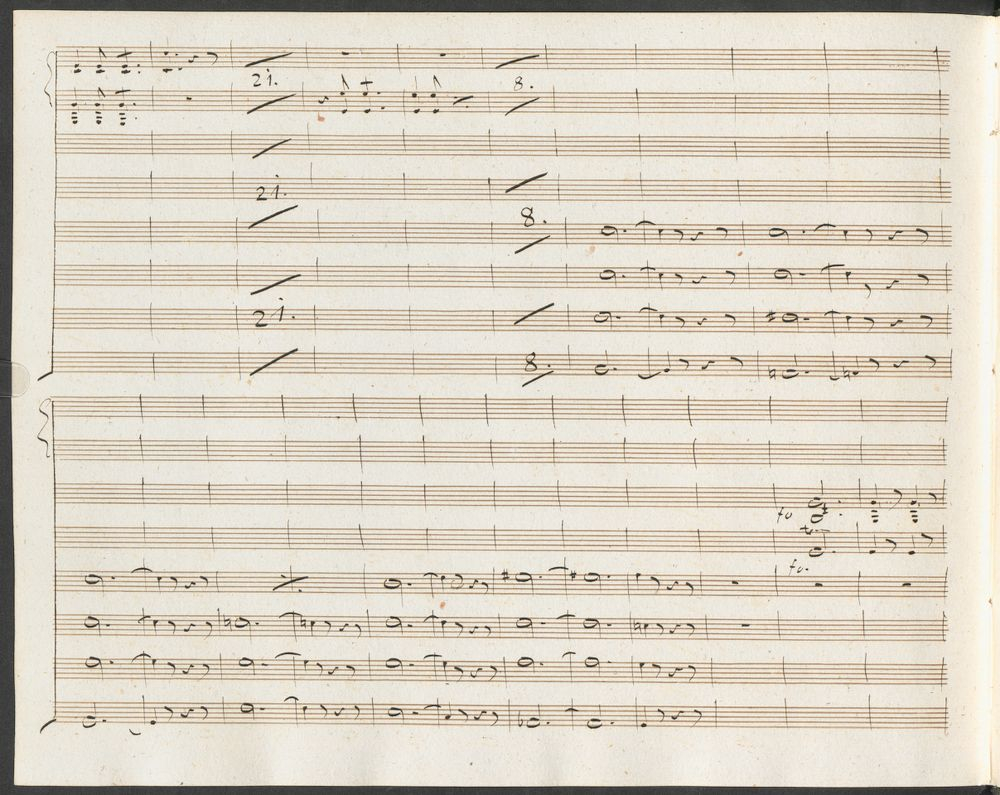 21.
8.
21.
8.
21.
8.
fo
tr
fo.